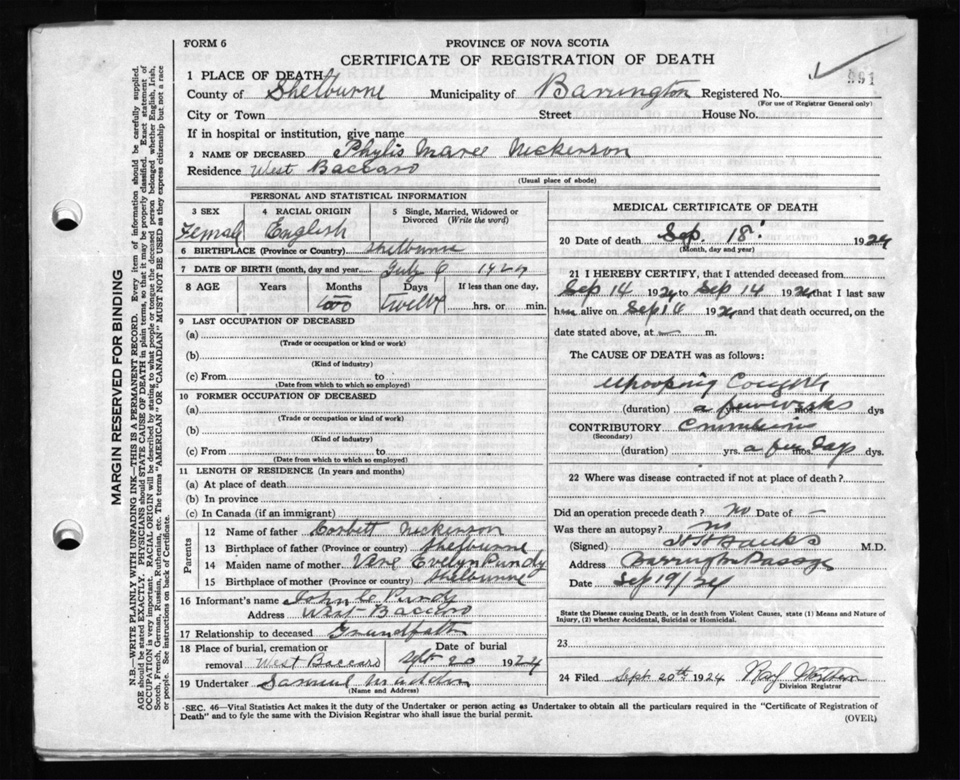 FORM 6
PROVINCE OF NOVA SCOTIA
CERTIFICATE OF REGISTRATION OF DEATH
991
1 PLACE OF DEATH
County of Shelburne Municipality of Barrington Registered No.
(For use of Registrar General only)
City or Town Street House No.
If in hospital or institution, give name
2 NAME OF DECEASED Phylis Maree Nickerson
Residence West Baccaro
(Usual place of abode)
MARGIN RESERVED FOR BINDING
N.B.—WRITE PLAINLY WITH UNFADING INK—THIS IS A PERMANENT RECORD. Every item of information should be carefully supplied.
AGE should be stated EXACTLY. PHYSICIANS should STATE CAUSE OF DEATH in plain terms, so that it may be properly classified. Exact statement of
OCCUPATION is very important. RACIAL ORIGIN will be described by stating to what people or tongue the deceased person belonged whether English, Irish,
Scotch, French, German, Russian, Ruthenian, etc. The terms "AMERICAN" or "CANADIAN" MUST NOT BE USED as they express citizenship but not a race
or people. See instructions on back of Certificate.
PERSONAL AND STATISTICAL INFORMATION
3 SEX
Female
4 RACIAL ORIGIN
English
5 Single, Married, Widowed or
Divorced (Write the word)
6 BIRTHPLACE (Province or Country) Shelburne
7 DATE OF BIRTH (month, day and year) July 6 1924
8 AGE Years Months Days If less than one day,
two twelve hrs. or min.
9 LAST OCCUPATION OF DECEASED
(a)
(Trade or occupation or kind or work)
(b)
(Kind of industry)
(c) From to
(Date from which to which so employed)
10 FORMER OCCUPATION OF DECEASED
(a)
(Trade or occupation or kind of work)
(b)
(Kind of industry)
(c) From to
(Date from which to which so employed)
11 LENGTH OF RESIDENCE (In years and months)
(a) At place of death
(b) In province
(c) In Canada (if an immigrant)
Parents
12 Name of father Corbett Nickerson
13 Birthplace of father (Province or country) Shelburne
14 Maiden name of mother Vere Evelyn Purdy
15 Birthplace of mother (Province or country) Shelburne
16 Informant's name John C Purdy
Address West Baccaro
17 Relationship to deceased Grandfath
18 Place of burial, cremation or
removal West Baccaro
Date of burial
Sept 20 1924
19 Undertaker Samuel
(Name and Address)
MEDICAL CERTIFICATE OF DEATH
20 Date of death Sep. 18 1924
(Month, day and year)
21 I HEREBY CERTIFY, that I attended deceased from
Sep 14 1924 to Sep 14 1924 that I last saw
h alive on Sep 14 1924 and that death occurred, on the
date stated above, at — m.
The CAUSE OF DEATH was as follows:
Whooping Cough
(duration) a few weeks yrs. mos. dys
CONTRIBUTORY
(Secondary)
(duration) yrs. a few mos. Days dys.
22 Where was disease contracted if not at place of death?
Did an operation precede death? No Date of —
Was there an autopsy? No
(Signed) Banks M.D.
Address Barrington Passage
Date Sep 19/24
State the Disease causing Death, or in death from Violent Causes, state (1) Means and Nature of
Injury, (2) whether Accidental, Suicidal or Homicidal.
23
24 Filed Sept. 20th 1924
Division Registrar
SEC. 46—Vital Statistics Act makes it the duty of the Undertaker or person acting as Undertaker to obtain all the particulars required in the "Certificate of Registration of
Death" and to fyle the same with the Division Registrar who shall issue the burial permit.
(OVER)